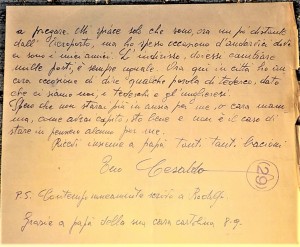 a pregare. Mi spiace solo che sono ora un po' distante
dall'aeroporto, ma ho spesso occasione d'andarci dato
ci sono i miei amici. L'indirizzo, dovessi cambiare
mille posti, è sempre uguale. Ora qui in città ho in
caro occasione di dire qualche parola di tedesco, dato
che ci siamo noi, i tedeschi e gli ungheresi.
Spero che non starai più in ansia per me, o cara mam
ma, come avrai capito, sto bene e non è il caso di
stare in pensiero alcuno per me.
Ricevi insieme a papà tanti tanti bacioni
Tuo Cesaldo
29
P.S. Contemporaneamente scrivo a Rodolfo
Grazie a papà della sua cara cartolina 8-9.